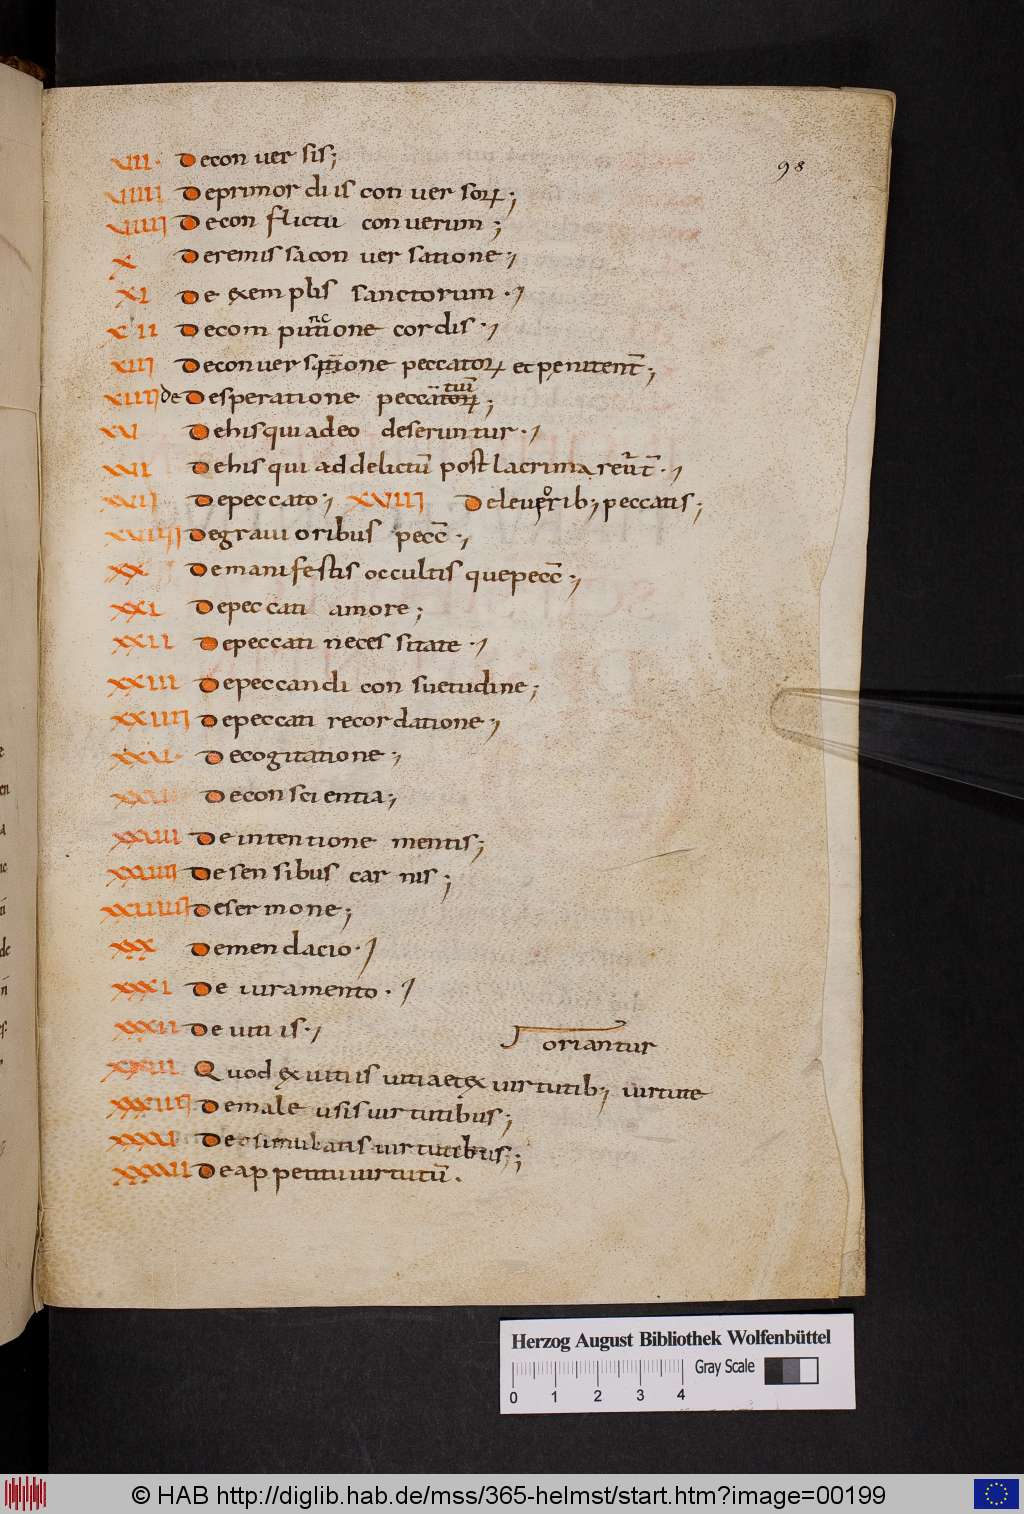 98
VII· Deconuer sis;
VIIII Deprimor diis con uer sorꝝ;
VIIIII Decon flictu conuerum;
X Deremis sacon uer satione;
XI De exem plis sanctorum ·;
XII Decom puntcione cordis ·;
XIII Deconuer satione peccatorꝝ et penitent̄;
XIIII de Desperatione peccatorꝝ tiū;
XV Dehis qui adeo deseruntur ·;
XVI Dehis qui ad delictū post lacrima reūt̄ ·;
XVII Depeccato ·; XVIII Deleuiorib; peccatis;
XVIIII Degraui oribus pecc̄ ·;
XX Demanifestis occultis que pecc̄ ·;
XXI Depeccati amore;
XXII Depeccati neces sitate ·;
XXIII Depeccandi con suetudine;
XXIIII Depeccati recordatione;
XXV· Decogitatione;
Decon scientia;
XXVII De intentione mentis;
XXVIII De sen sibus car nis;
XXVIIII Deser mone;
XXX Demendacio ·;
XXXI De iuramento ·;
XXXII De uiti is ·;
oriantur
XXXIII Quod ex uitiis uitia et ex uirtutib; uirtute
XXXIIII Demale usis uir tutibus;
XXXV De simulatis uir tutibus;
XXXVI De ap petitu uir tutū.
Herzog August Bibliothek Wolfenbüttel
Gray Scale
0 1 2 3 4
© HAB http://diglib.hab.de/mss/365-helmst/start.htm?image=00199